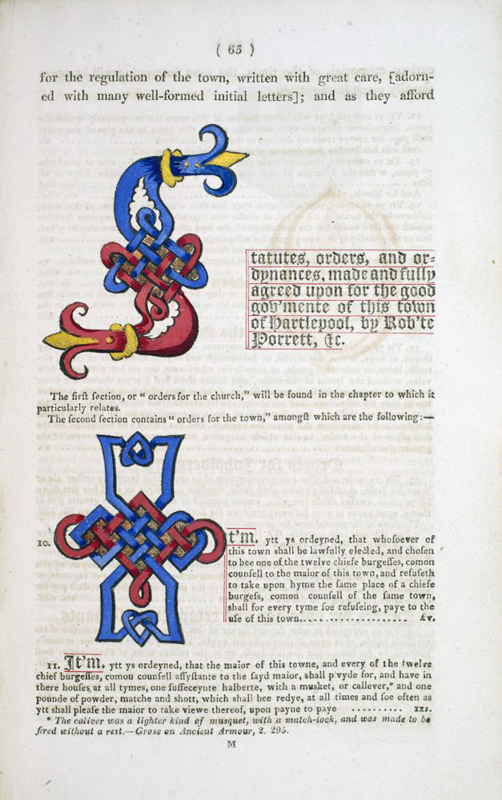 ( 65 )
for the regulation of the town, written with great care, [adorn-
ed with many well-formed initial letters]; and as they afford
S
tatutes, orders, and or=
dynances, made and fully
agreed upon for the good
gov'mente of this town
of Hartlepool, by Rob'te
Porrett, &c.
The firſt ſection, or “ orders for the church,” will be found in the chapter to which it
particularly relates.
The ſecond ſection contains “ orders for the town,” amongſt which are the following:—
10. I
t'm. ytt ys ordeyned, that whoſoever of
this town shall be lawfully elected, and choſen
to bee one of the twelve chieſe burgeſſes, comon
counſell to the maior of this town, and refuſeth
to take upon hyme the ſame place of a chieſe
burgeſs, comon counſell of the ſame town,
shall for every tyme ſoe refuſeing, paye to the
uſe of this town................... £v.
11. It'm. ytt ys ordeyned, that the maior of this towne, and every of the twelve
chief burgeſſes, comou counſell aſſyſtante to the ſayd maior, shall p'vyde for, and have in
there houſes, at all tymes, one ſuſſeceynte halberte, with a muſket, or callever,* and one
pounde of powder, matche and shott, which shall bee redye, at all times and ſoe often as
ytt shall pleaſe the maior to take viewe thereof, upon payne to paye .......... xxs.
* The caliver was a lighter kind of musquet, with a match-lock, and was made to be
fired without a rest.—Grose on Ancient Armour, 2. 295.
M